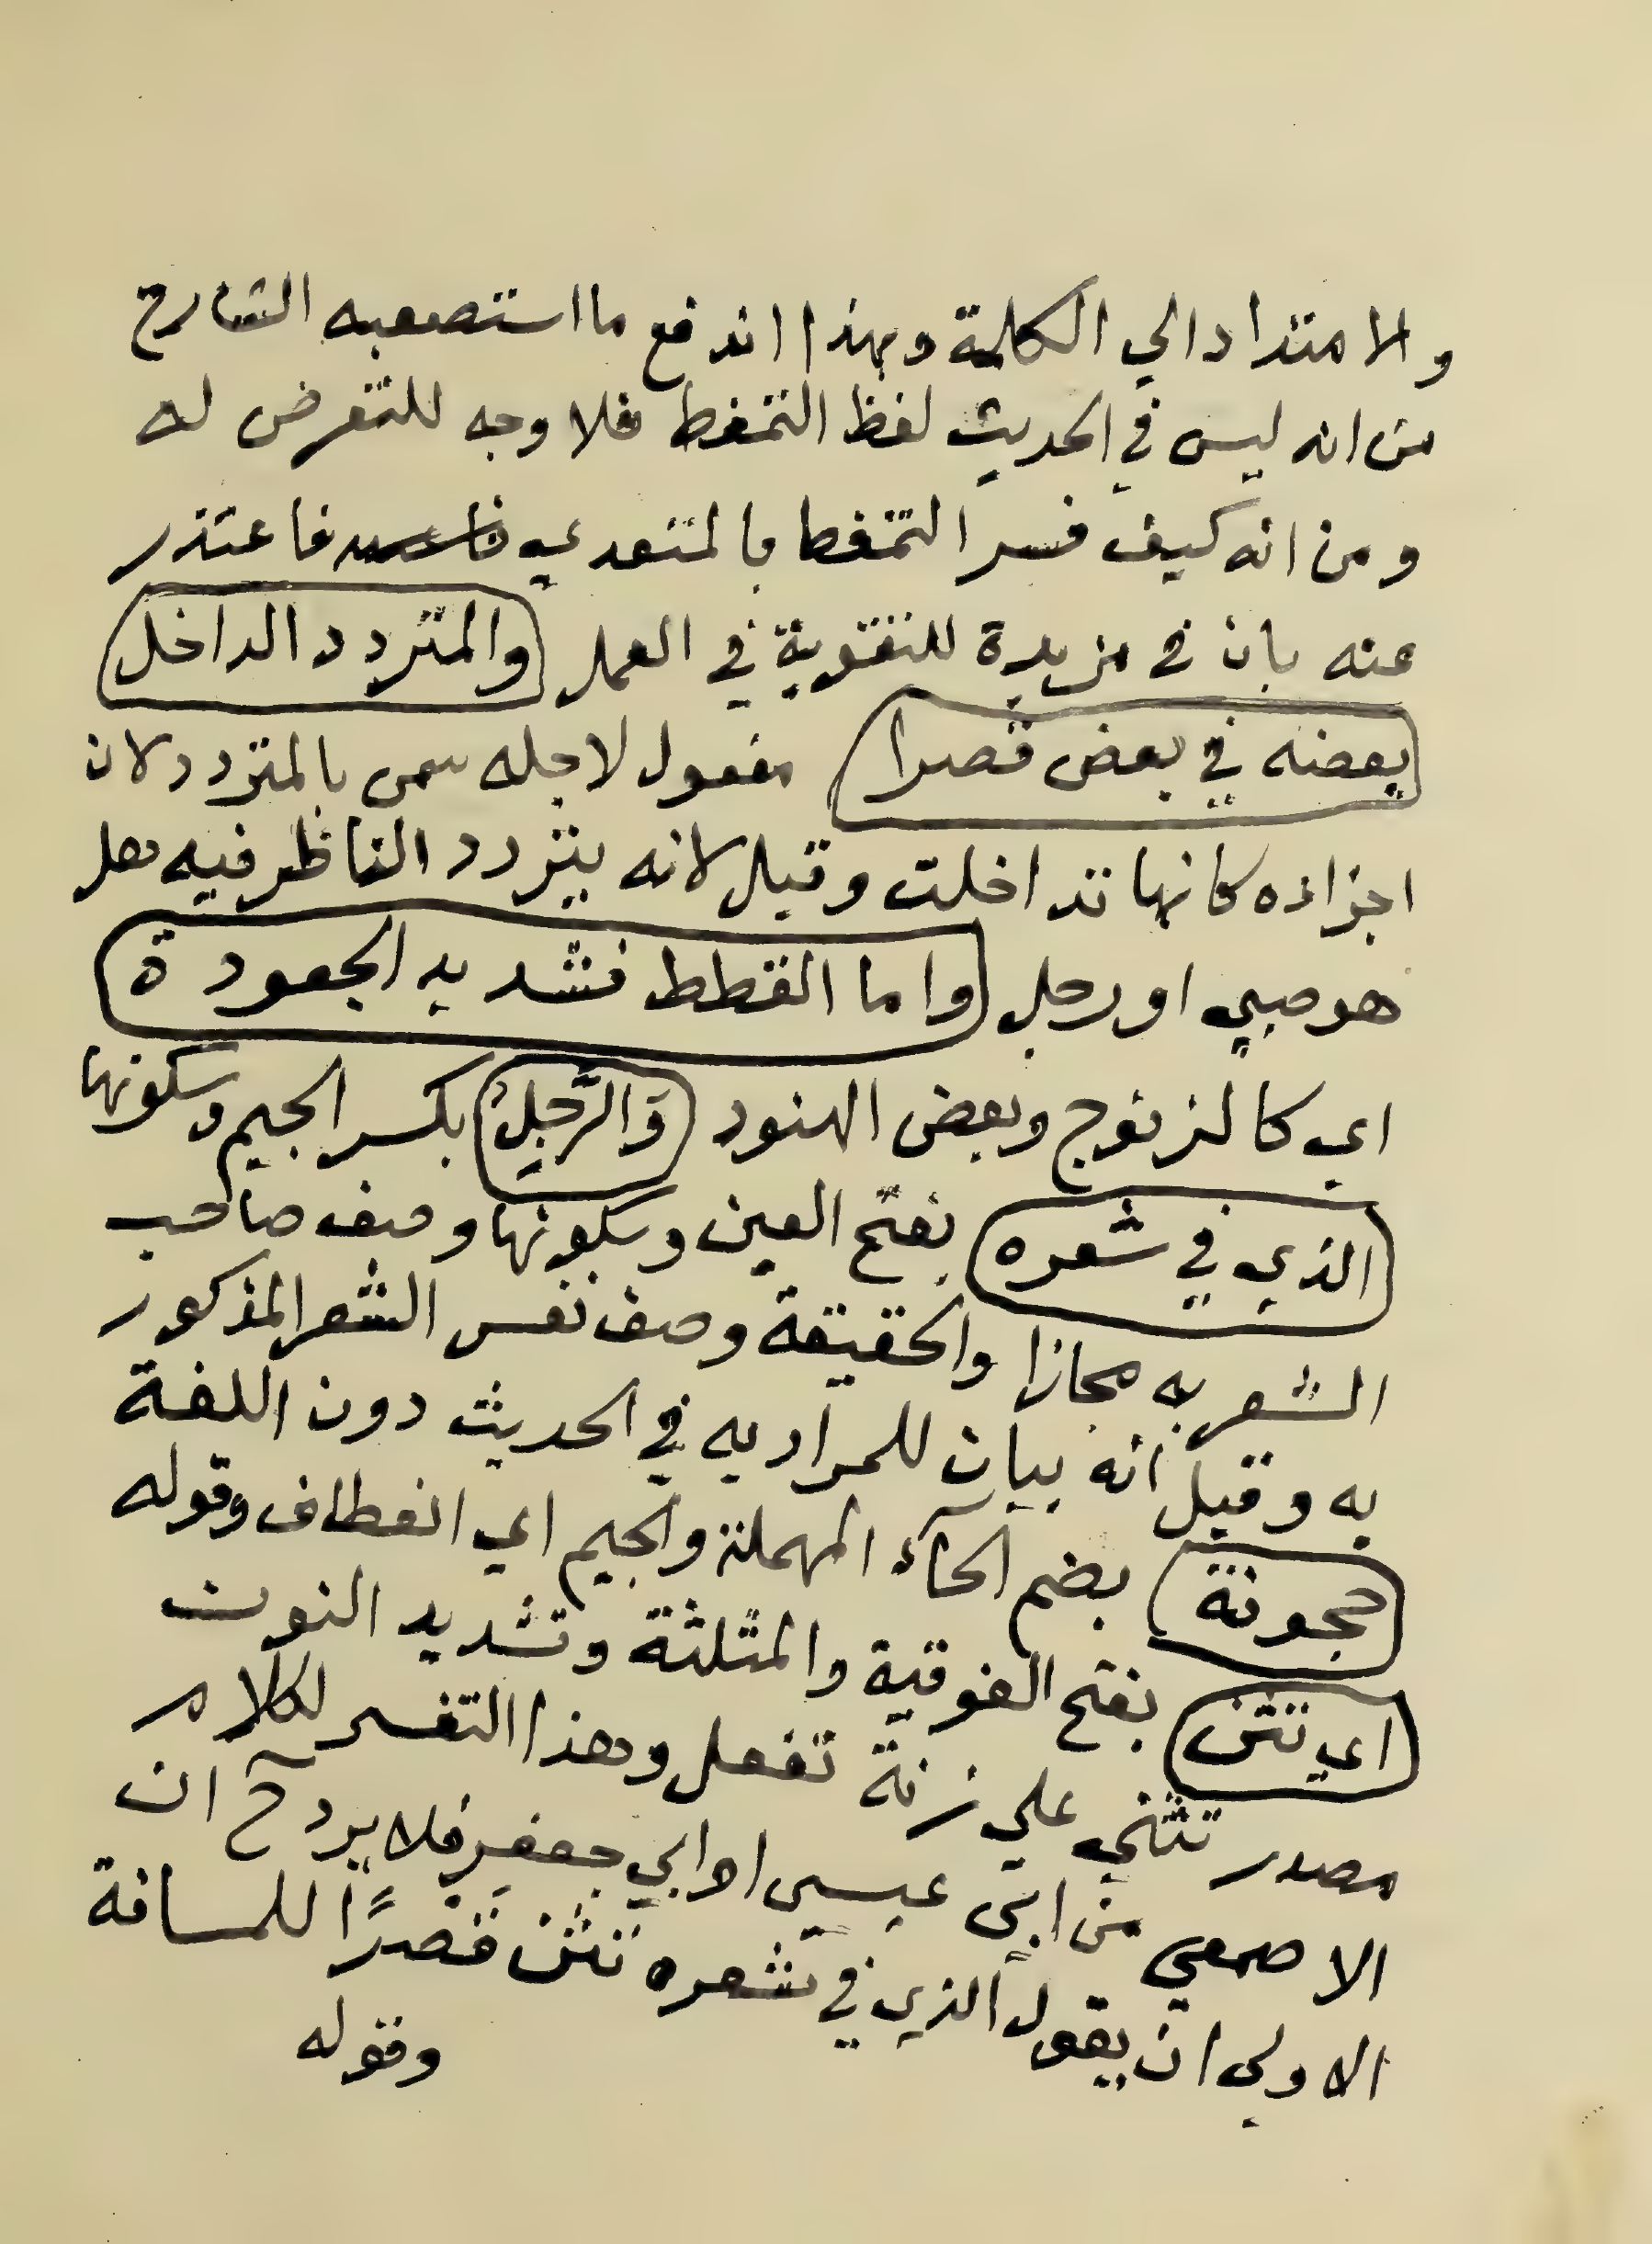 والامتداد الي الكلمة وبهذا اندفع ما استصعبه الشارح
من انه ليس في الحديث لفظ التمغط فلا وجه للتعرض له
ومن انه كيف فسر التمغط بالمتعدي فاعتذر
عنه بان في مزيدة للتقوية في العمل والمتردد الداخل
بعضه في بعض قصرا مفعول لاجله سمى بالمتردد لان
اجزاءه كانها تداخلت وقيل لانه يتردد الناظر فيه هل
هو صبي او رجل واما القطط فشديد الجعودة
اي كالزنوج وبعض الهنود وَالرَّجِلُ بكسر الجيم وسكونها
الذي في شعره بفتح العين وسكونها وصف صاحب
الشعر به مجازا والحقيقة وصف نفس الشعر المذكور
به وقيل انه بيان للمراد به في الحديث دون اللغة
حجونة بضم الحآء المهملة والجيم اي انعطاف وقوله
اي تثن بفتح الفوقية والمثلثة وتشديد النون
مصدر تثني علي زنة تفعل وهذا التفسير لكلام
الاصمعي من ابى عيسى او ابي جعفر فلا يرد ح ان
الاولي ان يقول الذي في شعره تثن قصرًا للمسافة
وقوله